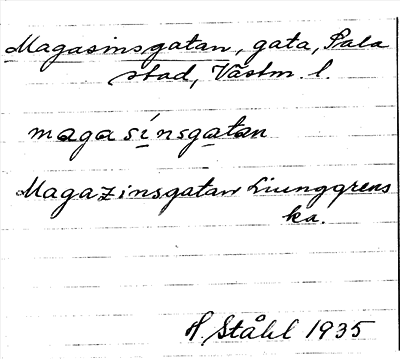 Magasinsgatan, gata, Sala
stad, Västm. l.
magasínsgatan
Magazinsgatan Liunggrens
ka.
H. Ståhl 1935